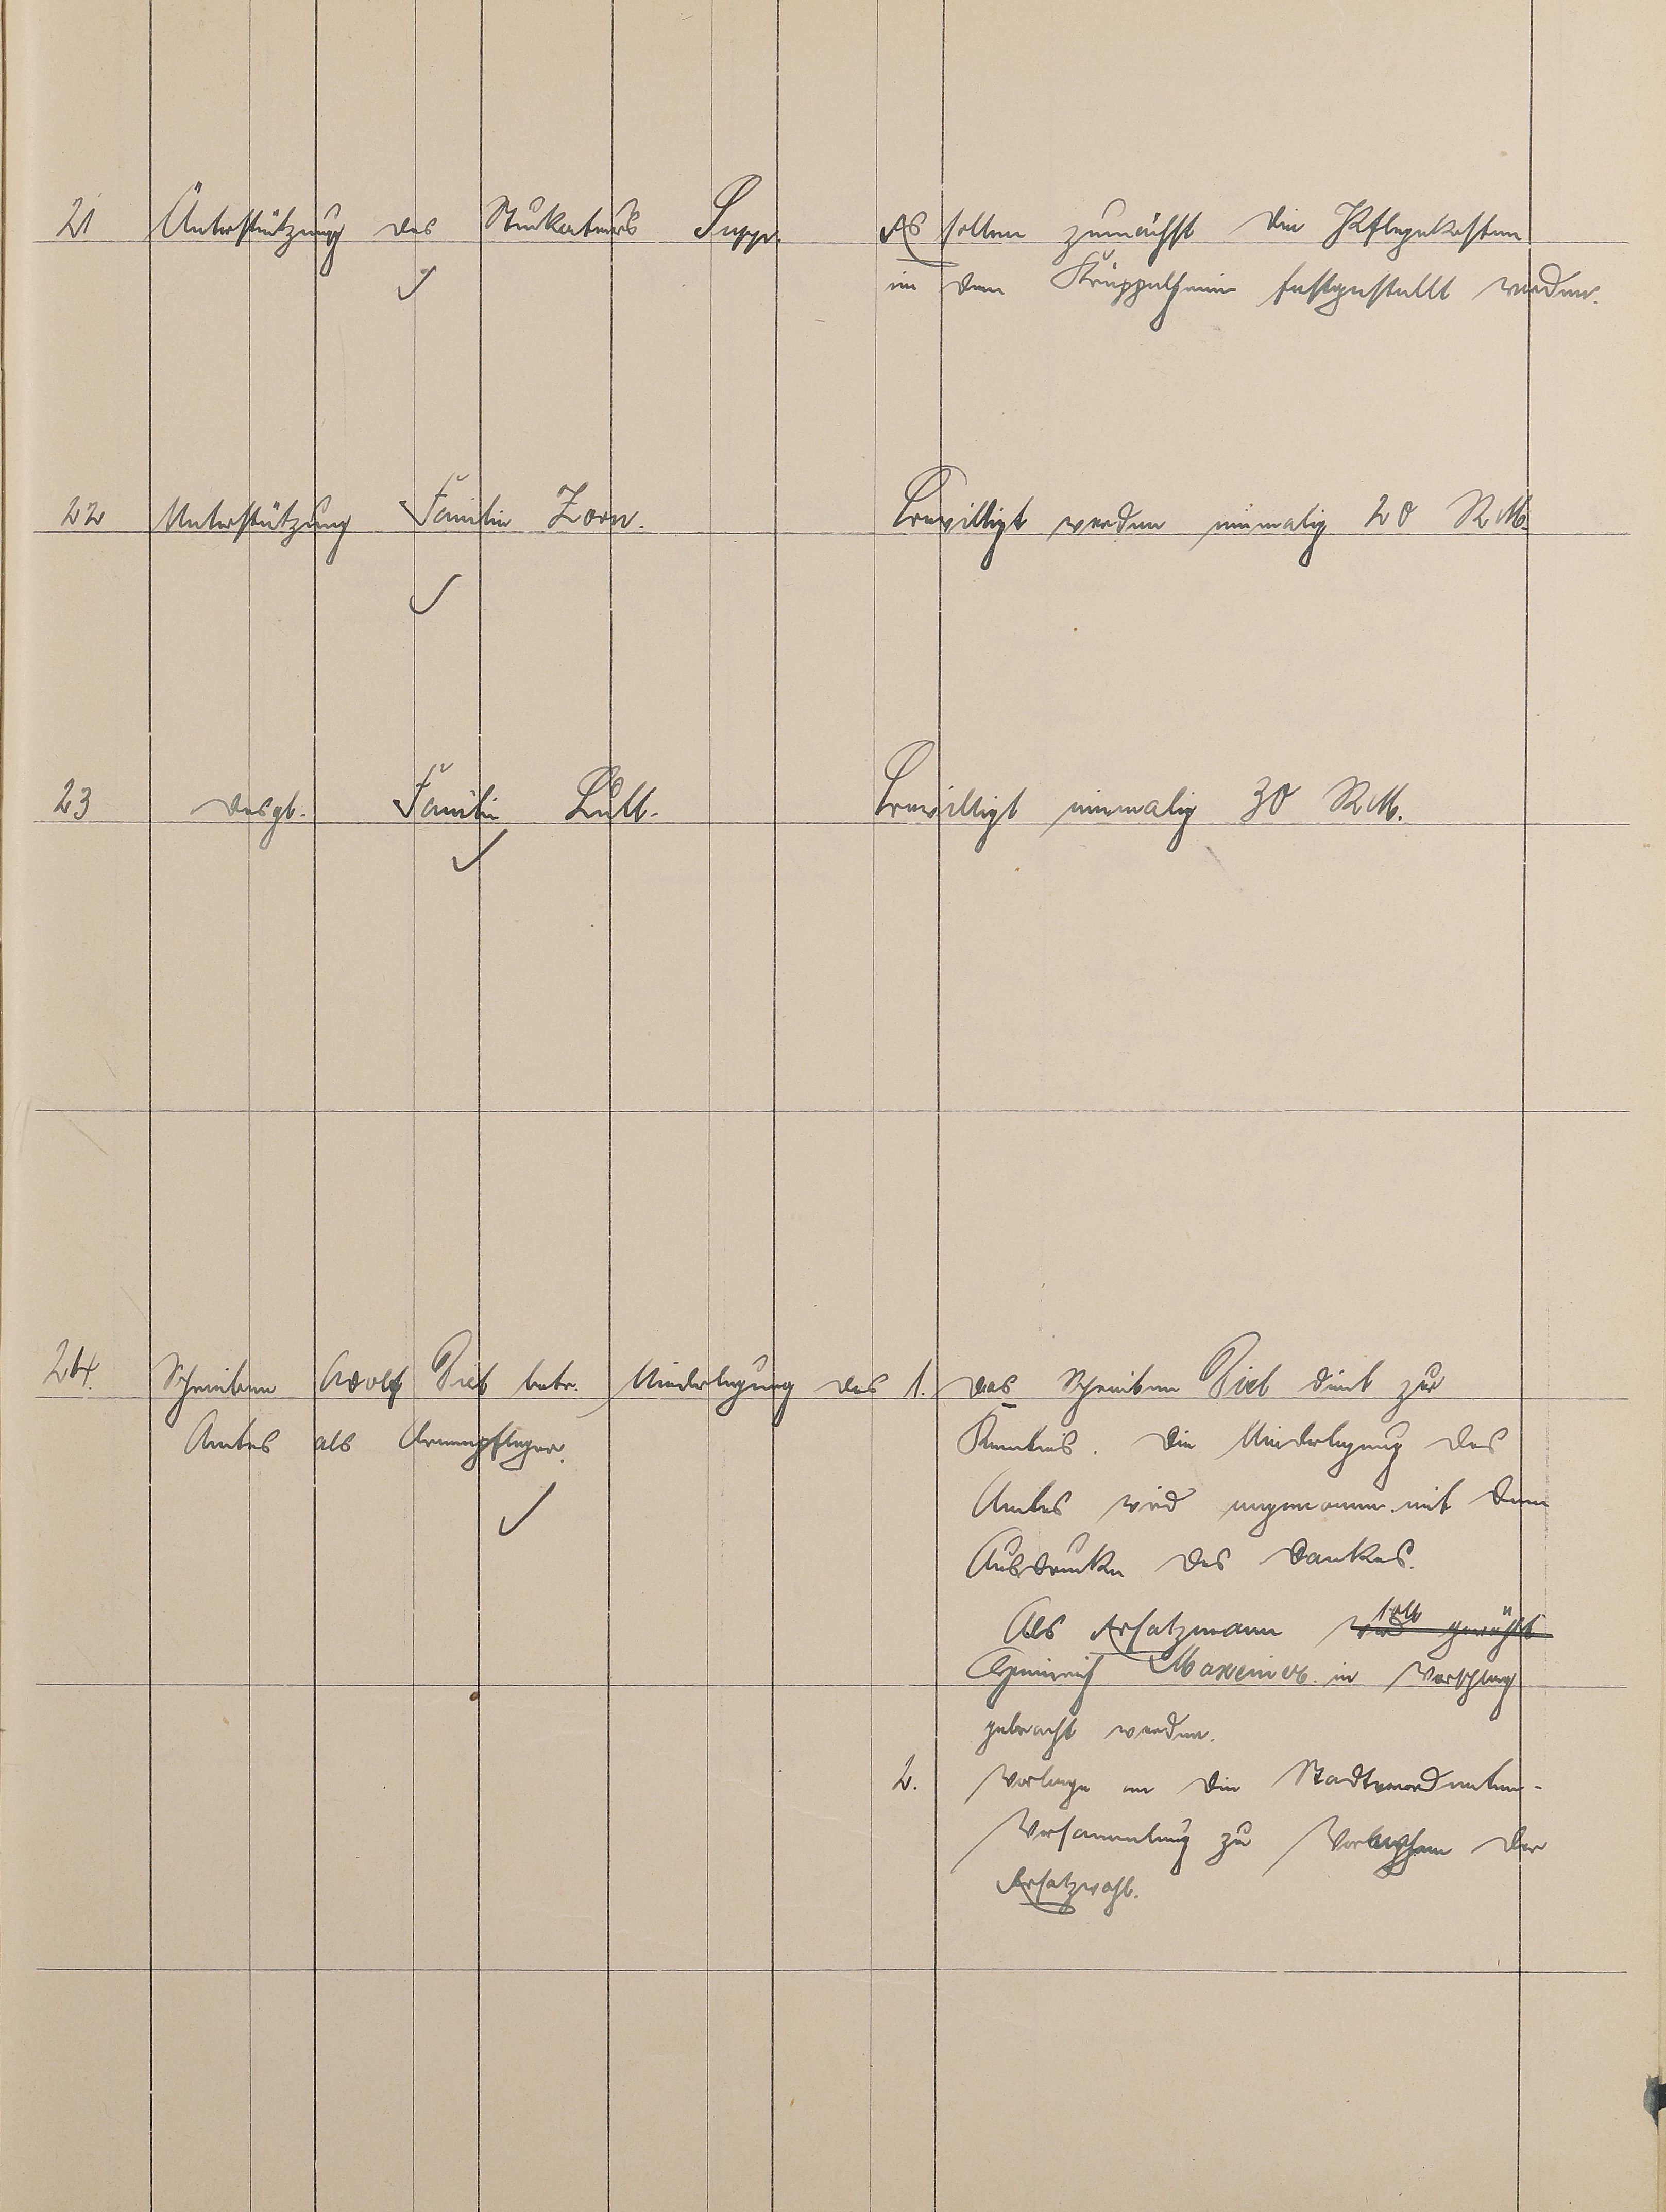 21 Unterstützung des Stukateurs Supp. Es sollen zunächst die Pflegekosten
in dem Krüppelheim festgestellt werden.
22 Unterstützung Familie Zorn. Bewilligt werden einmalig 20 RM.
23 desgl. Familie Bull. Bewilligt einmalig 30 RM.
24. Schreiben Adolf Piel betr. Niederlegung des 1. Das Schreiben Piel dient zur
Amtes als Armenpfleger. Kenntnis. Die Niederlegung des
Amtes wird angenomm. mit dem
Ausdrucke des Dankes.
soll
Als Ersatzmann wird gewählt
Heinrich Maxeiner in Vorschlag
gebracht werden.
2. Vorlage an die Stadtverordneten-
Versammlung zu der
Ersatzwahl.